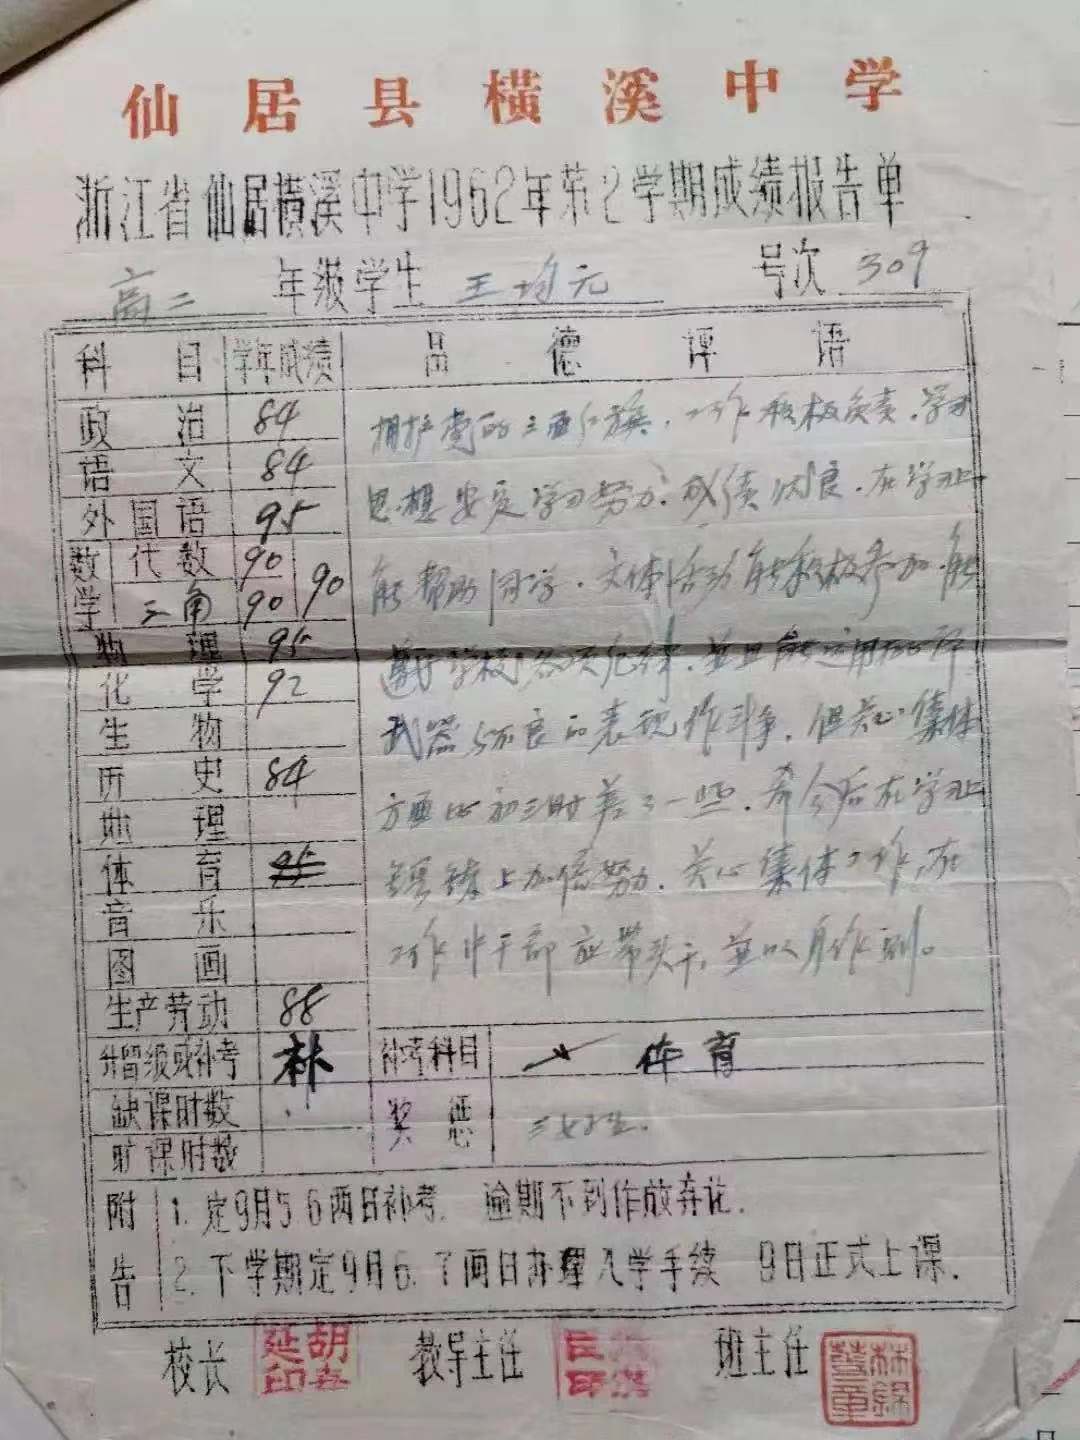 仙居县横溪中学
浙江省仙居横溪中学1962年第2学期成绩报告单
高二 年级学生 王均元 号次 309
科目 学年成绩 品德评语
政治 84
语文 84
外国语 95
数学 代数 90 90
三角 90
物理 95
化学 92
生物
历史 84
地理
体育
音乐
图画
生产劳动 88
拥护党的三面红旗，工作积极负责，学习
思想安定学习努力，成绩优良，在学业上
能帮助同学，文体活动能积极参加，能
遵守学校各项纪律，并且能运用批评
武器与不良的表现作斗争，但关心集体
方面比初三时差了一些，希今后在学业
锻炼上加倍努力，关心集体工作，在
工作中干部应带头干，并以身作则。
升留级或补考 补 补考科目 体育
缺课时数 奖惩 三好生.
旷课时数
附告 1. 定9月5.6两日补考. 逾期不到作放弃论.
2. 下学期定9月6.7两日办理入学手续 9日正式上课.
校长 胡 延印 教导主任 班主任 林